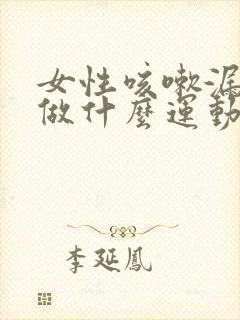 女性咳嗽漏
做什麼運動
李延鳳